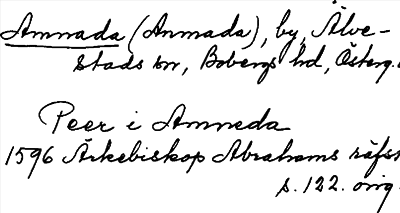 Amnada (Anmada), by, Älve-
stads sn, Bobergs hd, Österg.
Peer i Amneda
1596 Ärkebiskop Abrahams räfst
s. 122. orig.